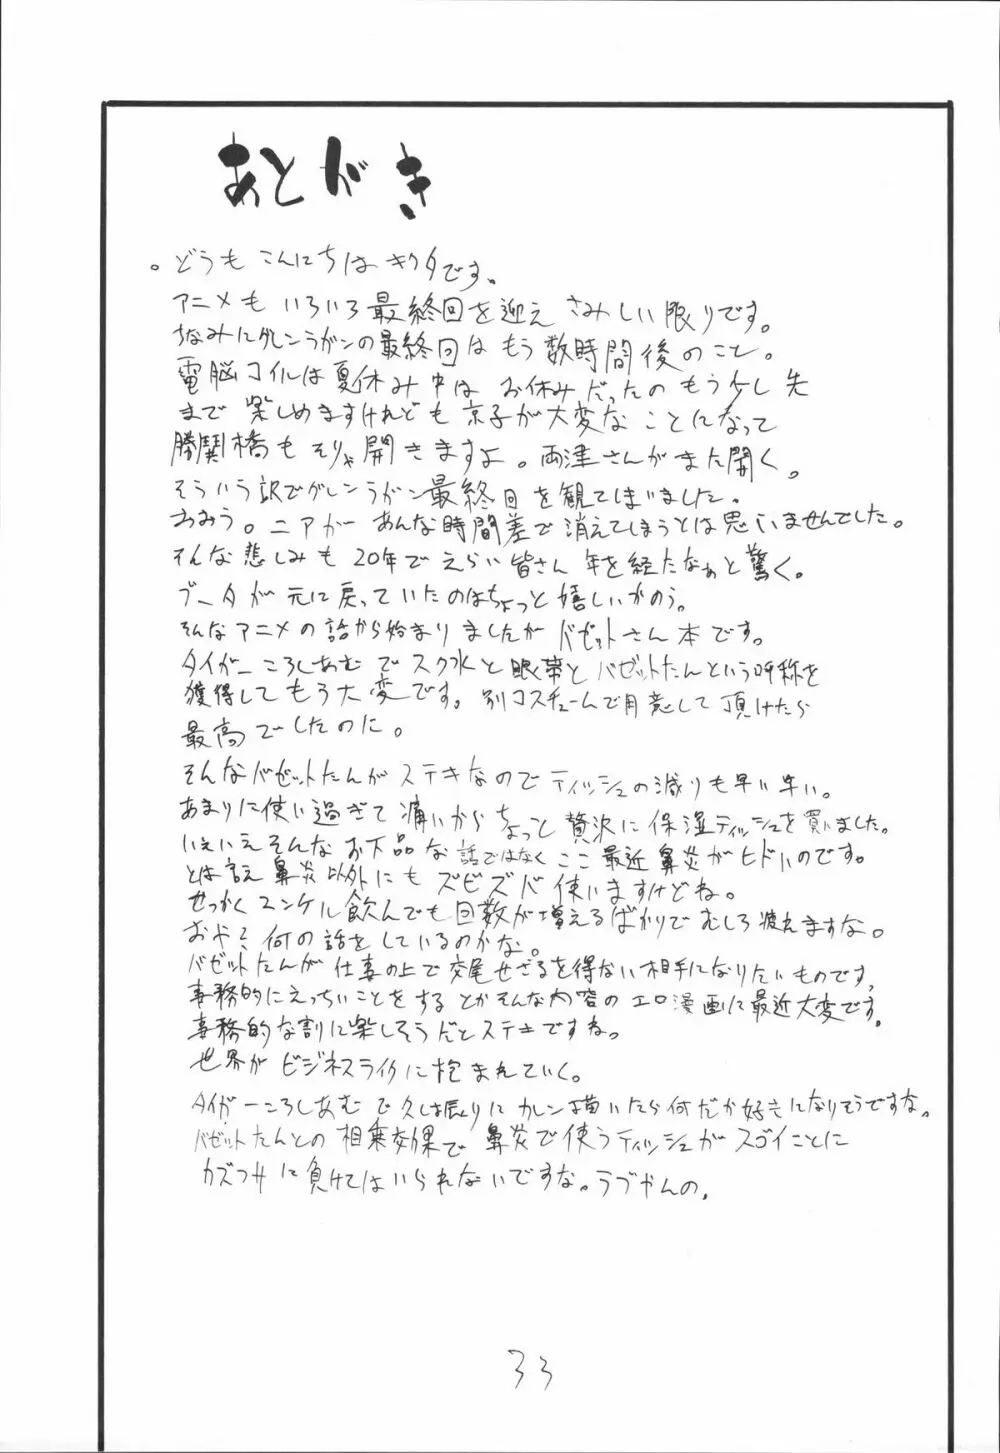 あとがき
。どうも こんにちは キクタです。
アニメも いろいろ最終回を迎え さみしい限りです。
ちなみにグレンラガンの最終回は もう数時間後のこと。
電脳コイルは夏休み中は お休みだったの もう少し先
まで 楽しめますけれども 京子が大変な ことになって
勝鬨橋も そりゃ開きますよ。両津さんがまた開く。
そういう訳でグレンラガン最終回を観てしまいました。
おおう。ニアが あんな時間差で消えてしまうとは思いませんでした。
そんな悲しみも 20年でえらい皆さん 年を経たなぁと驚く。
ブータが 元に戻っていたのはちょっと嬉しいかのう。
そんなアニメの話から始まりましたが バゼットさん本です。
タイガーころしあむで スク水と眼帯と バゼットたんという呼称を
獲得して もう大変です。別コスチュームで用意して 頂けたら
最高でしたのに。
そんなバゼットたんが ステキなので ティッシュの減りも早い早い。
あまりに使い過ぎて 痛いから ちょっと 贅沢に 保湿ティッシュを買いました。
いえいえそんな お下品な 話ではなく ここ 最近 鼻炎がヒドいのです。
とは言え 鼻炎以外にも ズビズバ 使いますけどね。
せっかくユンケル飲んでも回数が増えるばかりで むしろ疲れますな。
おや？何の話をしているのかな。
バゼットたんが 仕事の上で交尾せざるを得ない相手になりたいものです。
事務的にえっちいことをする とかそんな内容の エロ漫画に最近大変です。
事務的な割に楽しそうだとステキですね。
世界が ビジネスライクに抱まれていく。
タイガーころしあむ で久し振りに カレン描いたら何だか好きになりそうですな。
バゼットたんとの 相乗効果で 鼻炎で使うティッシュが スゴイことに
カズフサに負けてはいられないですな。ラブやんの。
33